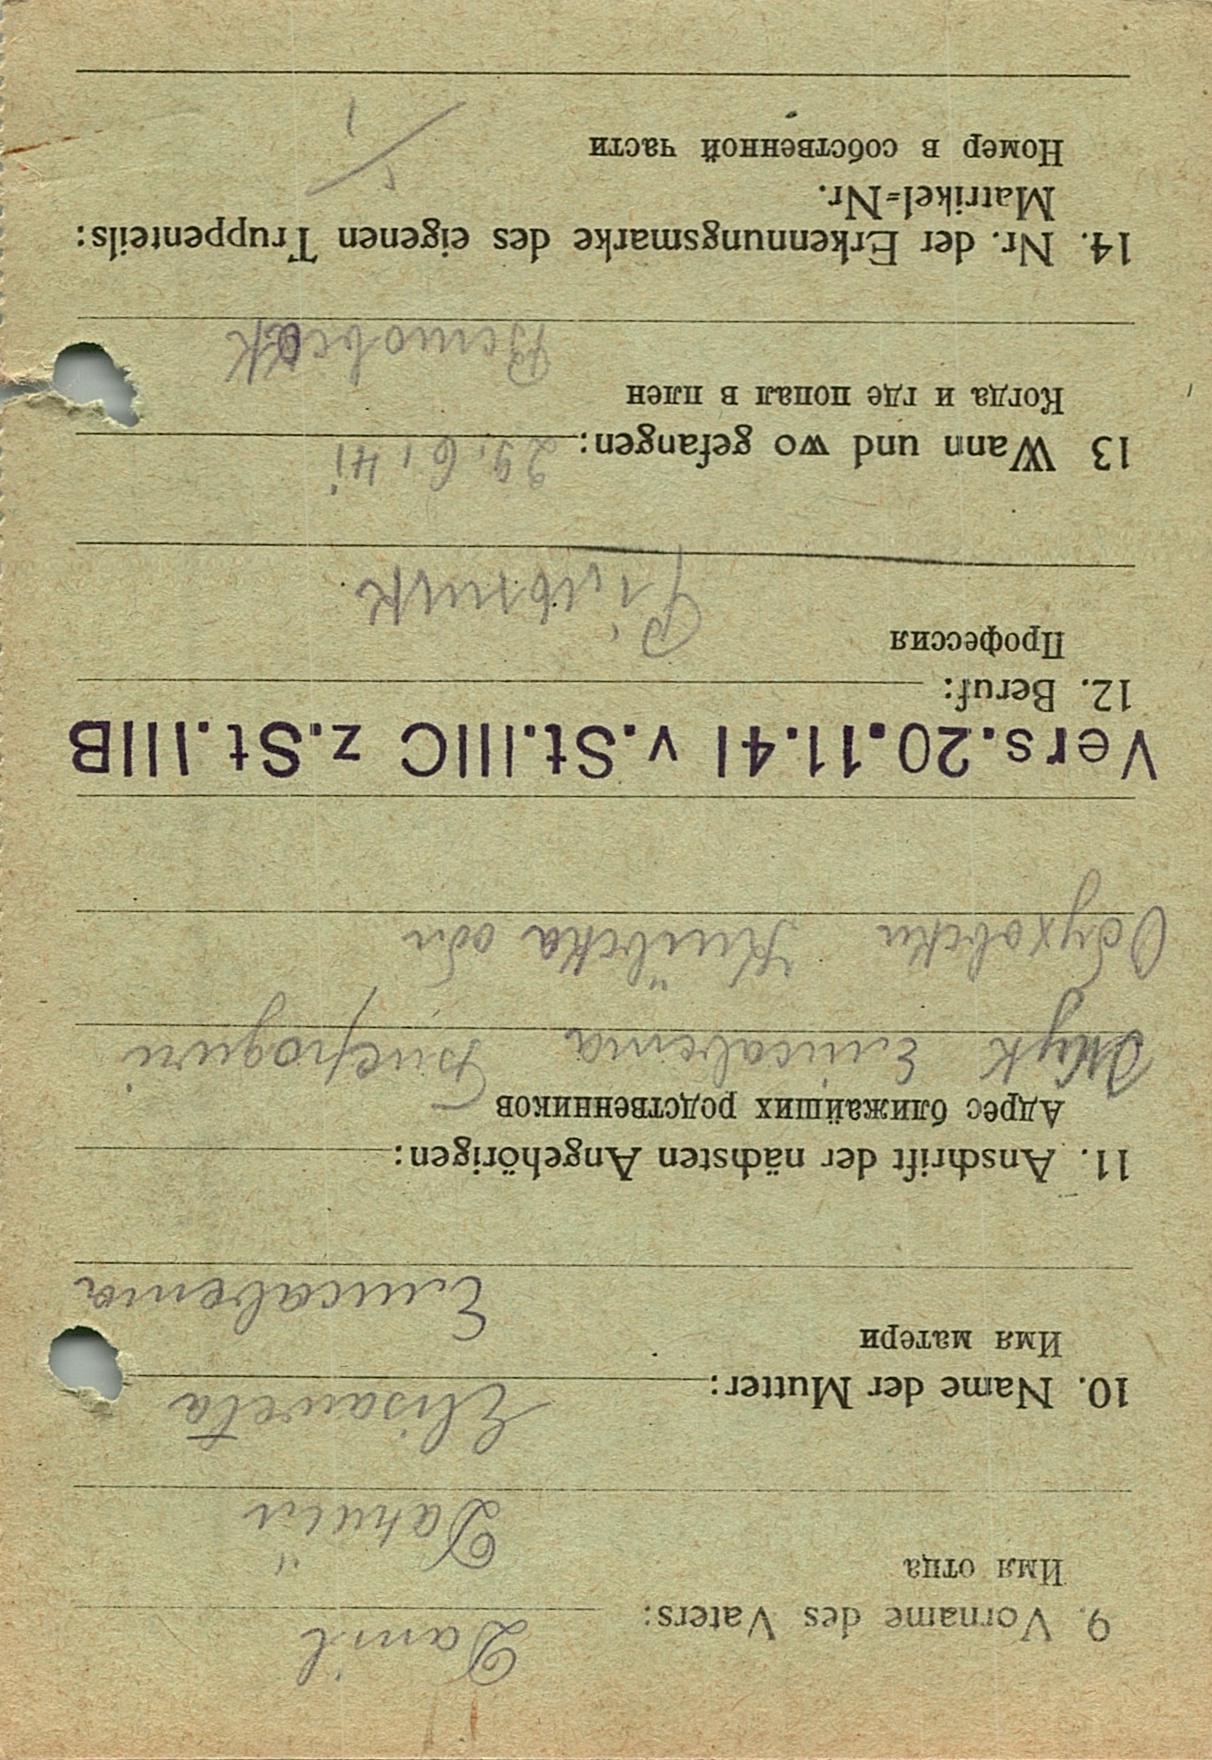 9. Vorname des Vaters: Danil
Имя отца
Даниїл
10. Name der Mutter: Elisaweta
Имя матери
Елисавета
11. Anschrift der nächsten Angehörigen:
Адрес ближайших родственников
Жук Елисавета
Обуховски Київска обл
Vers.20.11.41 v.St.IIIC z.St.IIIB
12. Beruf:
Профессия
Рільник
13 Wann und wo gefangen: 29.6.41
Когда и где попал в плен
14. Nr. der Erkennungsmarke des eigenen Truppenteils:
Matrikel=Nr.
Номер в собственной части